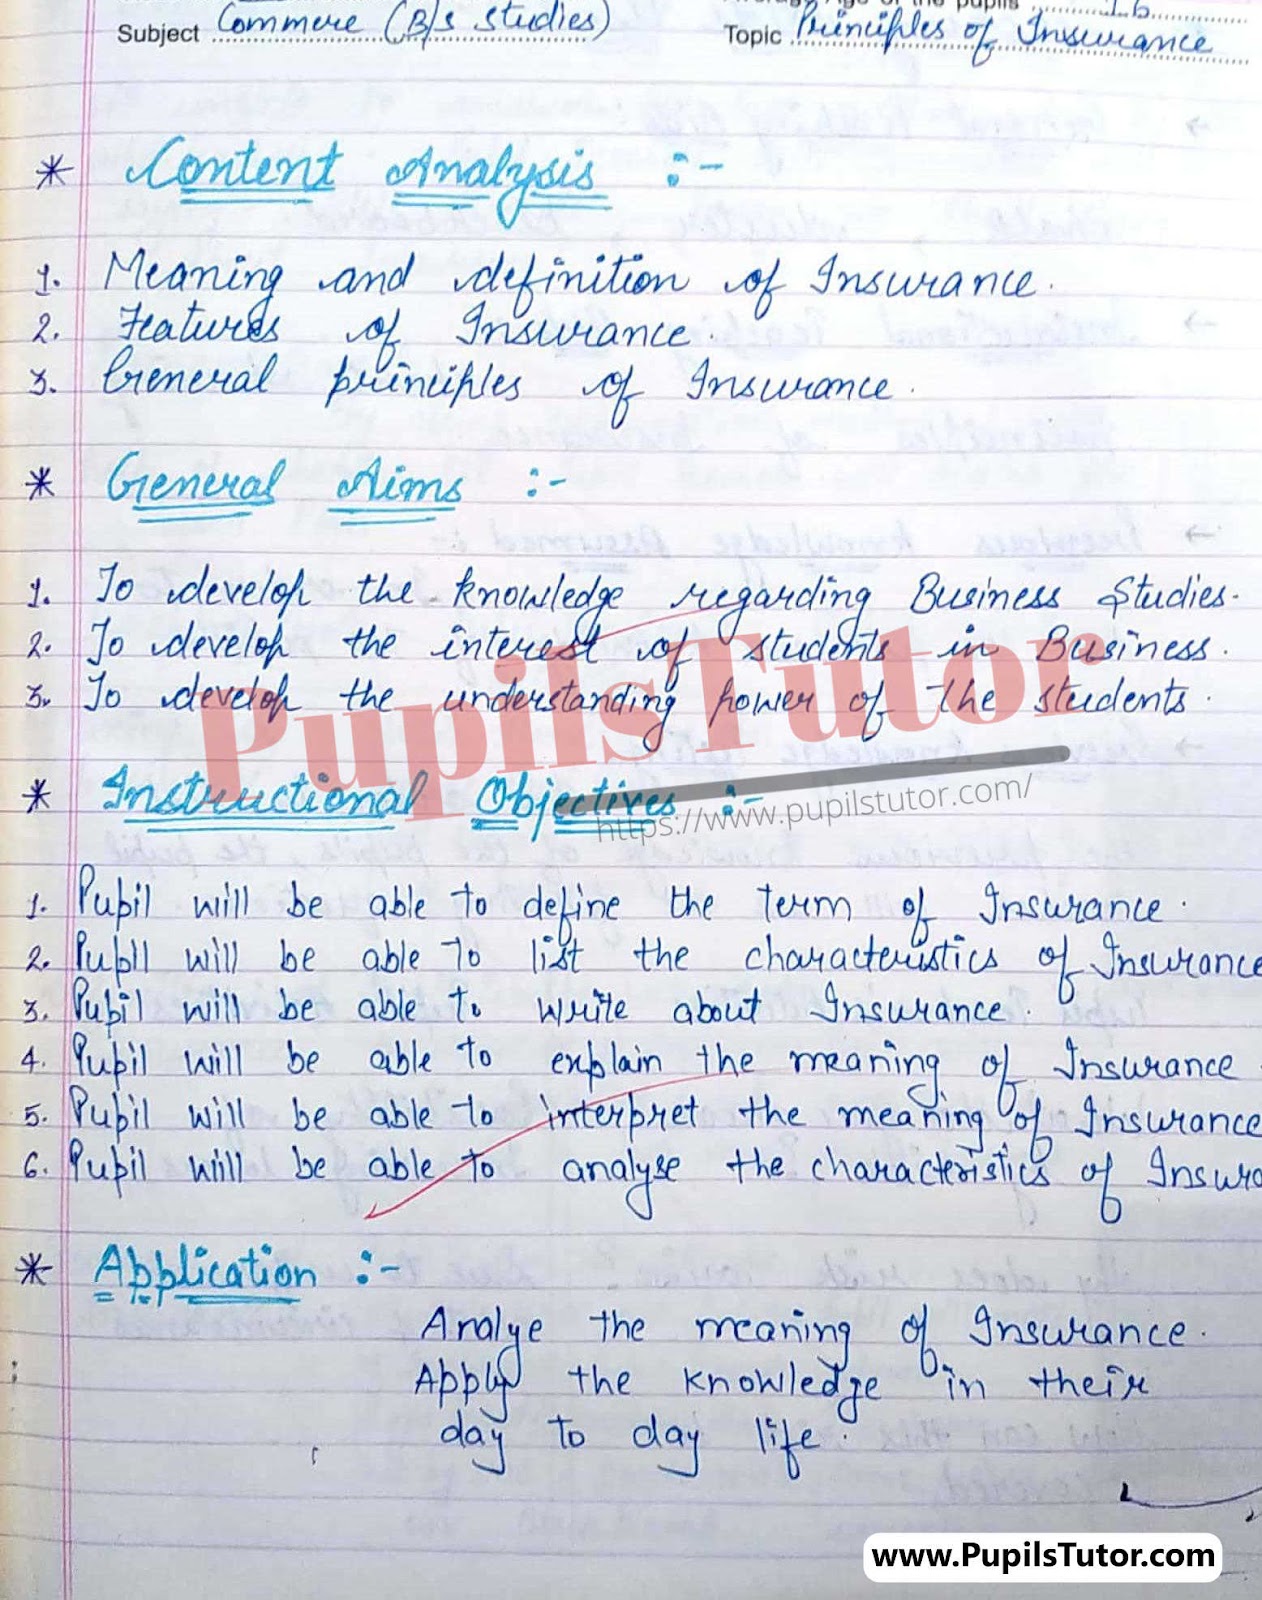 Average Age of the pupils 16
Subject Commerce (B/s studies)
Topic Principles of Insurance
* Content Analysis :-
1. Meaning and definition of Insurance.
2. Features of Insurance.
3. General principles of Insurance.
* General Aims :-
1. To develop the knowledge regarding Business Studies.
2. To develop the interest of students in Business.
3. To develop the understanding power of the students.
PupilsTutor
* Instructional Objectives :-
https://www.pupilstutor.com/
1. Pupil will be able to define the term of Insurance.
2. Pupil will be able to list the characteristics of Insurance
3. Pupil will be able to write about Insurance.
4. Pupil will be able to explain the meaning of Insurance
5. Pupil will be able to interpret the meaning of Insurance
6. Pupil will be able to analyse the characteristics of Insura
* Application :-
Analye the meaning of Insurance.
Apply the knowledge in their
day to day life.
www.PupilsTutor.com